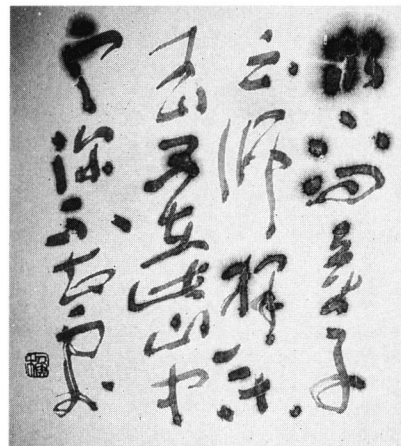 松下問童子
言師採药
去只在此山中
雲深不知處